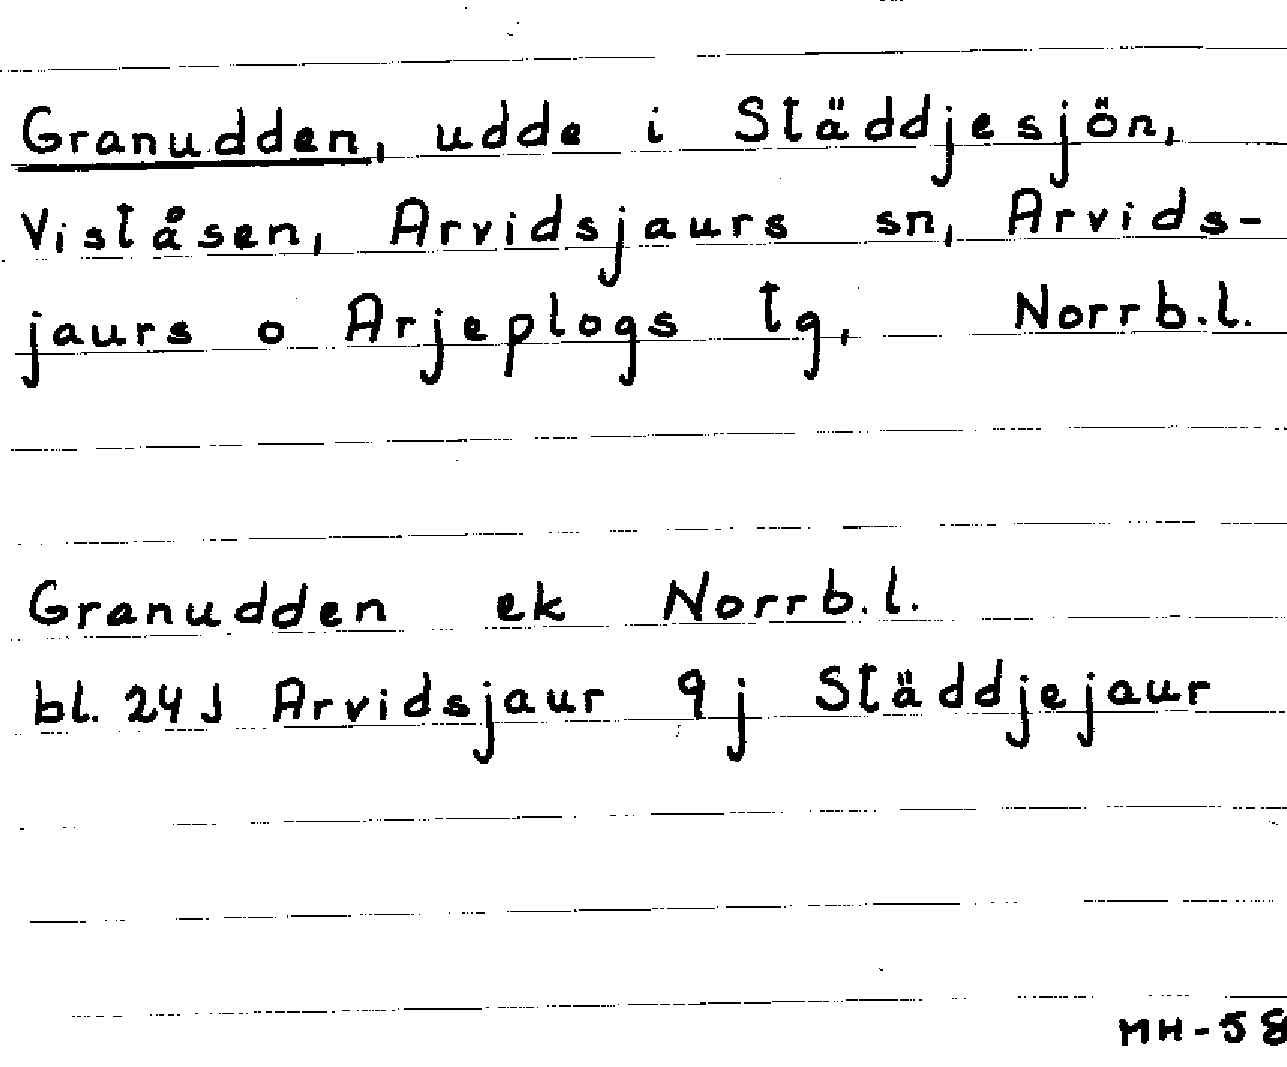 Granudden, udde i Ståddjesjön,
Viståsen, Arvidsjaurs sn, Arvids-
jaurs o Arjeplogs tg, Norrb.l.
Granudden ek Norrb.l.
bl. 24J Arvidsjaur 9j Städdjejaur
MH-58